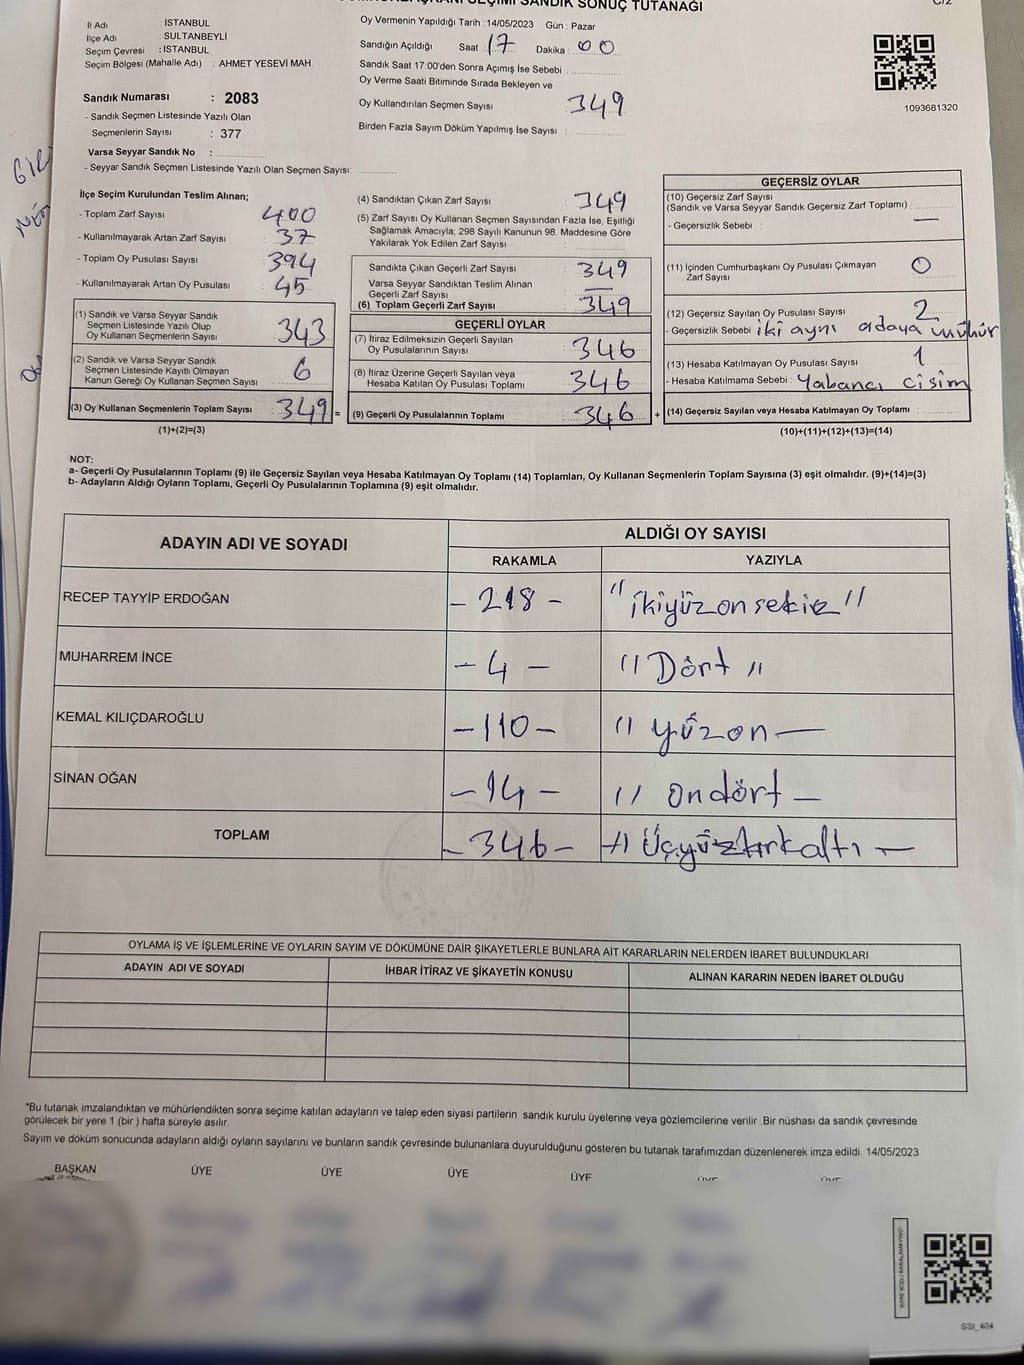 SEÇİMİ SANDIK SONUÇ TUTANAĞI
C/2
İl Adı : İSTANBUL
İlçe Adı : SULTANBEYLİ
Seçim Çevresi : İSTANBUL
Seçim Bölgesi (Mahalle Adı) : AHMET YESEVİ MAH.
Sandık Numarası : 2083
- Sandık Seçmen Listesinde Yazılı Olan
Seçmenlerin Sayısı : 377
Varsa Seyyar Sandık No :
- Seyyar Sandık Seçmen Listesinde Yazılı Olan Seçmen Sayısı:
Oy Vermenin Yapıldığı Tarih :14/05/2023 Gün : Pazar
Sandığın Açıldığı Saat 17 Dakika : 00
Sandık Saat 17.00'den Sonra Açımış İse Sebebi :
Oy Verme Saati Bitiminde Sırada Bekleyen ve
Oy Kullandırılan Seçmen Sayısı : 349
Birden Fazla Sayım Döküm Yapılmış İse Sayısı :
1093681320
İlçe Seçim Kurulundan Teslim Alınan;
- Toplam Zarf Sayısı 400
- Kullanılmayarak Artan Zarf Sayısı : 37
- Toplam Oy Pusulası Sayısı : 394
- Kullanılmayarak Artan Oy Pusulası : 45
(1) Sandık ve Varsa Seyyar Sandık
Seçmen Listesinde Yazılı Olup
Oy Kullanan Seçmenlerin Sayısı : 343
(2) Sandık ve Varsa Seyyar Sandık
Seçmen Listesinde Kayıtlı Olmayan
Kanun Gereği Oy Kullanan Seçmen Sayısı : 6
(3) Oy Kullanan Seçmenlerin Toplam Sayısı : 349 =
(1)+(2)=(3)
(4) Sandıktan Çıkan Zarf Sayısı : 349
(5) Zarf Sayısı Oy Kullanan Seçmen Sayısından Fazla İse, Eşitliği
Sağlamak Amacıyla, 298 Sayılı Kanunun 98. Maddesine Göre
Yakılarak Yok Edilen Zarf Sayısı :
Sandıkta Çıkan Geçerli Zarf Sayısı : 349
Varsa Seyyar Sandıktan Teslim Alınan
Geçerli Zarf Sayısı : —
(6) Toplam Geçerli Zarf Sayısı : 349
GEÇERLİ OYLAR
(7) İtiraz Edilmeksizin Geçerli Sayılan
Oy Pusulalarının Sayısı : 346
(8) İtiraz Üzerine Geçerli Sayılan veya
Hesaba Katılan Oy Pusulası Toplamı : 346
(9) Geçerli Oy Pusulalarının Toplamı : 346 +
GEÇERSİZ OYLAR
(10) Geçersiz Zarf Sayısı
(Sandık ve Varsa Seyyar Sandık Geçersiz Zarf Toplamı) :
- Geçersizlik Sebebi : —
(11) İçinden Cumhurbaşkanı Oy Pusulası Çıkmayan
Zarf Sayısı : 0
(12) Geçersiz Sayılan Oy Pusulası Sayısı : 2
- Geçersizlik Sebebi : iki aynı adaya mühür
(13) Hesaba Katılmayan Oy Pusulası Sayısı : 1
- Hesaba Katılmama Sebebi : Yabancı cisim
(14) Geçersiz Sayılan veya Hesaba Katılmayan Oy Toplamı :
(10)+(11)+(12)+(13)=(14)
NOT:
a- Geçerli Oy Pusulalarının Toplamı (9) ile Geçersiz Sayılan veya Hesaba Katılmayan Oy Toplamı (14) Toplamları, Oy Kullanan Seçmenlerin Toplam Sayısına (3) eşit olmalıdır. (9)+(14)=(3)
b- Adayların Aldığı Oyların Toplamı, Geçerli Oy Pusulalarının Toplamına (9) eşit olmalıdır.
ADAYIN ADI VE SOYADI
ALDIĞI OY SAYISI
RAKAMLA YAZIYLA
RECEP TAYYİP ERDOĞAN - 218 - "ikiyüzonsekiz"
MUHARREM İNCE - 4 - "Dört"
KEMAL KILIÇDAROĞLU - 110 - " yüzon —
SİNAN OĞAN - 14 - " ondört —
TOPLAM - 346 - " Üçyüzkırkaltı —
OYLAMA İŞ VE İŞLEMLERİNE VE OYLARIN SAYIM VE DÖKÜMÜNE DAİR ŞİKAYETLERLE BUNLARA AİT KARARLARIN NELERDEN İBARET BULUNDUKLARI
ADAYIN ADI VE SOYADI İHBAR İTİRAZ VE ŞİKAYETİN KONUSU ALINAN KARARIN NEDEN İBARET OLDUĞU
*Bu tutanak imzalandıktan ve mühürlendikten sonra seçime katılan adayların ve talep eden siyasi partilerin sandık kurulu üyelerine veya gözlemcilerine verilir .Bir nüshası da sandık çevresinde
görülecek bir yere 1 (bir ) hafta süreyle asılır.
Sayım ve döküm sonucunda adayların aldığı oyların sayılarını ve bunların sandık çevresinde bulunanlara duyurulduğunu gösteren bu tutanak tarafımızdan düzenlenerek imza edildi. 14/05/2023
BAŞKAN ÜYE ÜYE ÜYE ÜYE
SSI_404